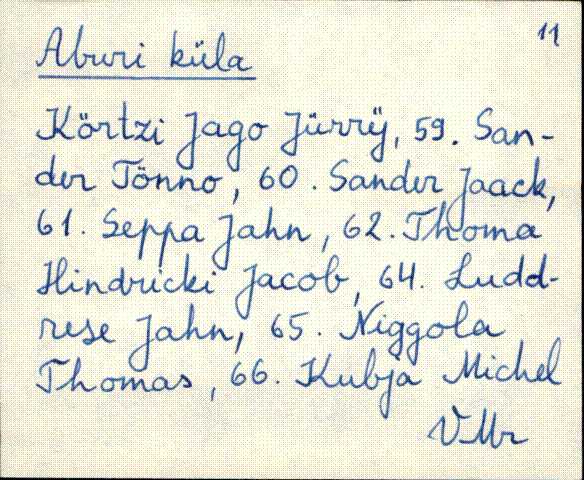 11
Aburi küla
Körtzi Jago Jürrÿ, 59. San-
der Tönno, 60. Sander Jaack,
61. Seppa Jahn, 62. Thoma
Hindricki Jacob, 64. Ludd-
rese Jahn, 65. Niggola
Thomas, 66. Kubja Michel
VMr